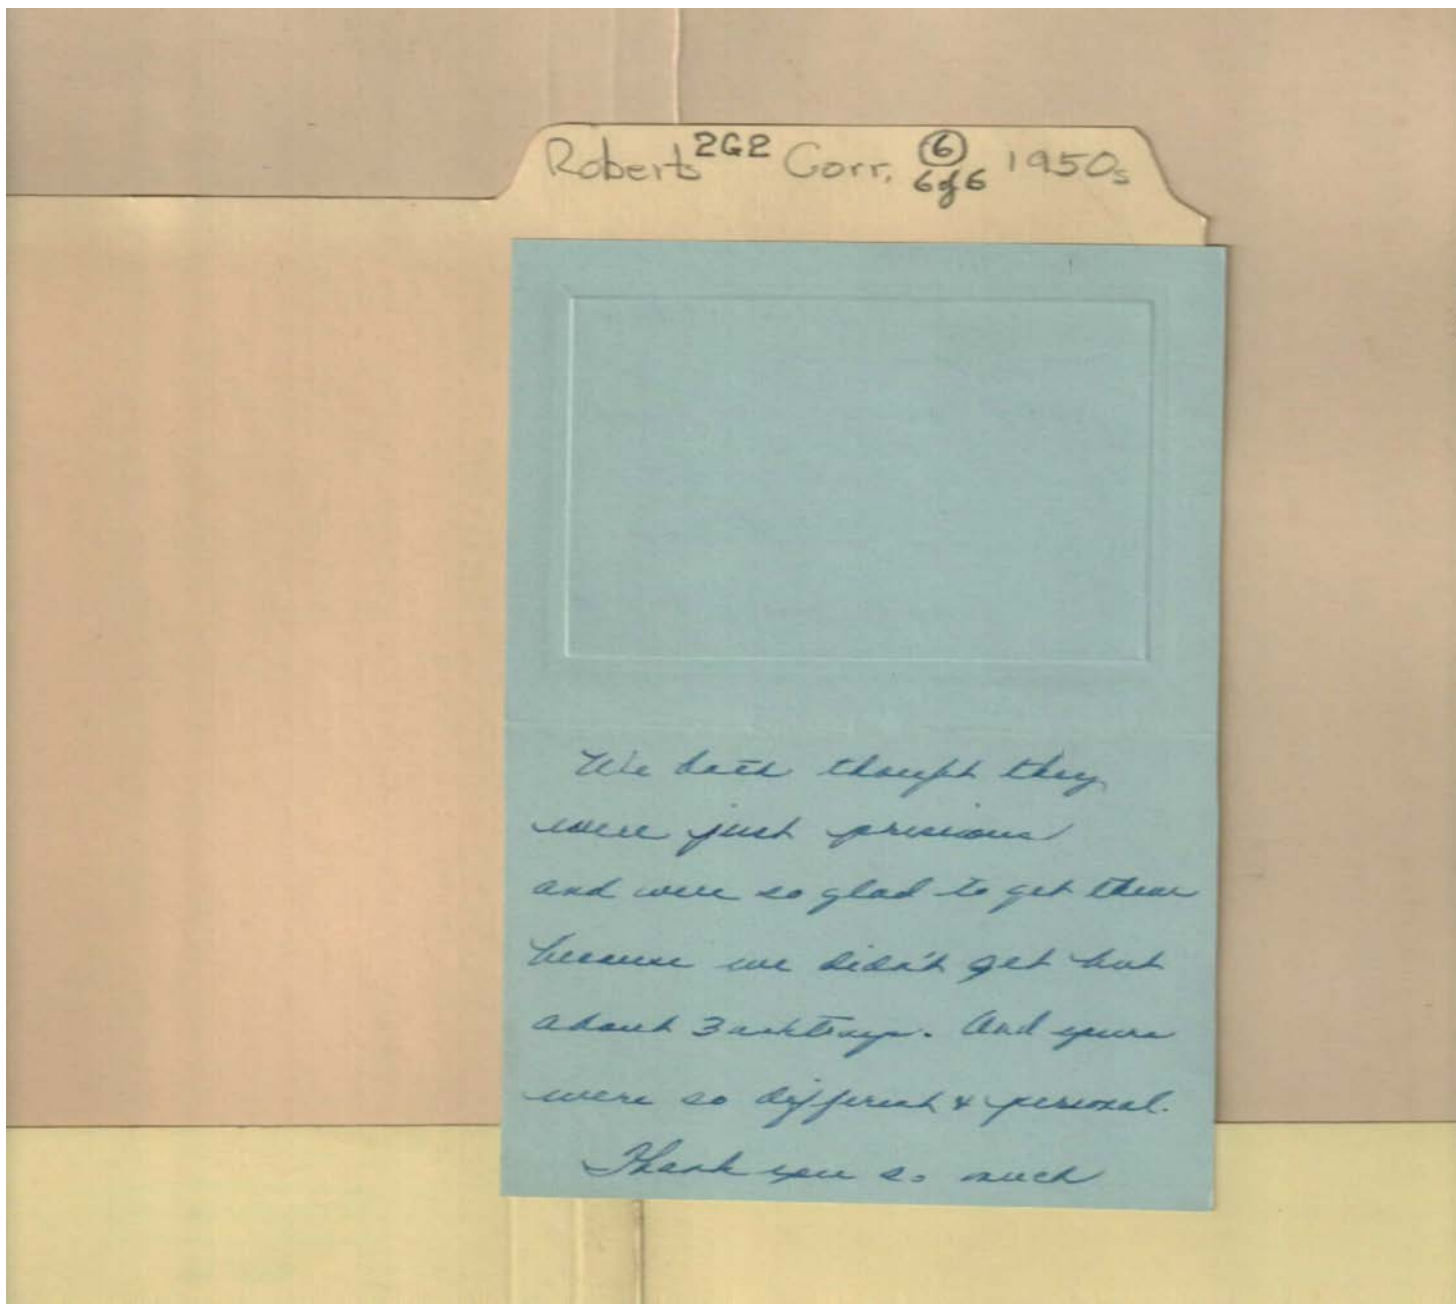 Roberts 2G2 Corr. 6 1950s
6 of 6
We both thought they
were just precious
and were so glad to get them
because we didn't get but
about 3 ashtrays. And yours
were so different & personal.
Thank you so much